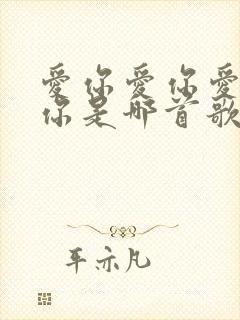 愛你愛你愛
你是哪首歌
平亦凡